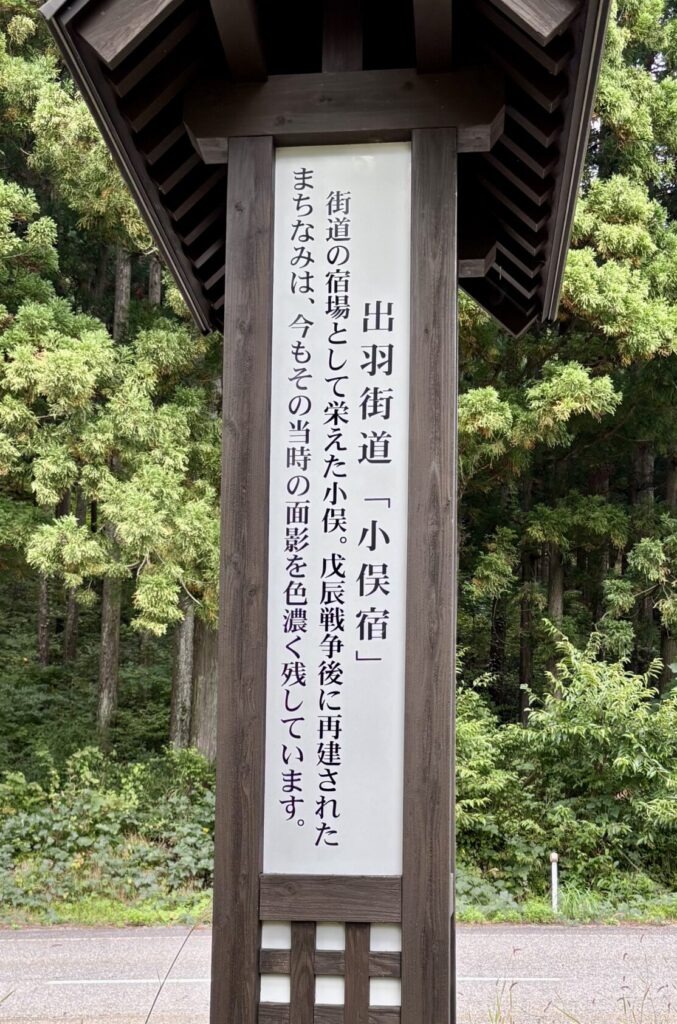 出羽街道「小俣宿」
街道の宿場として栄えた小俣。戊辰戦争後に再建された
まちなみは、今もその当時の面影を色濃く残しています。